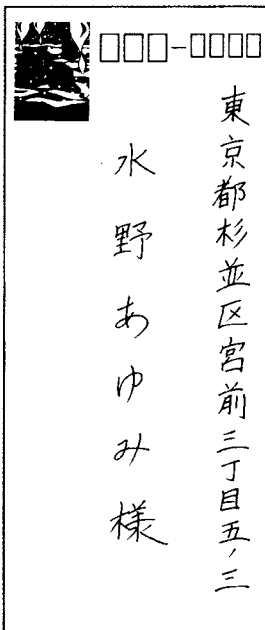 東京都杉並区宮前三丁目五ノ三
水野あゆみ様